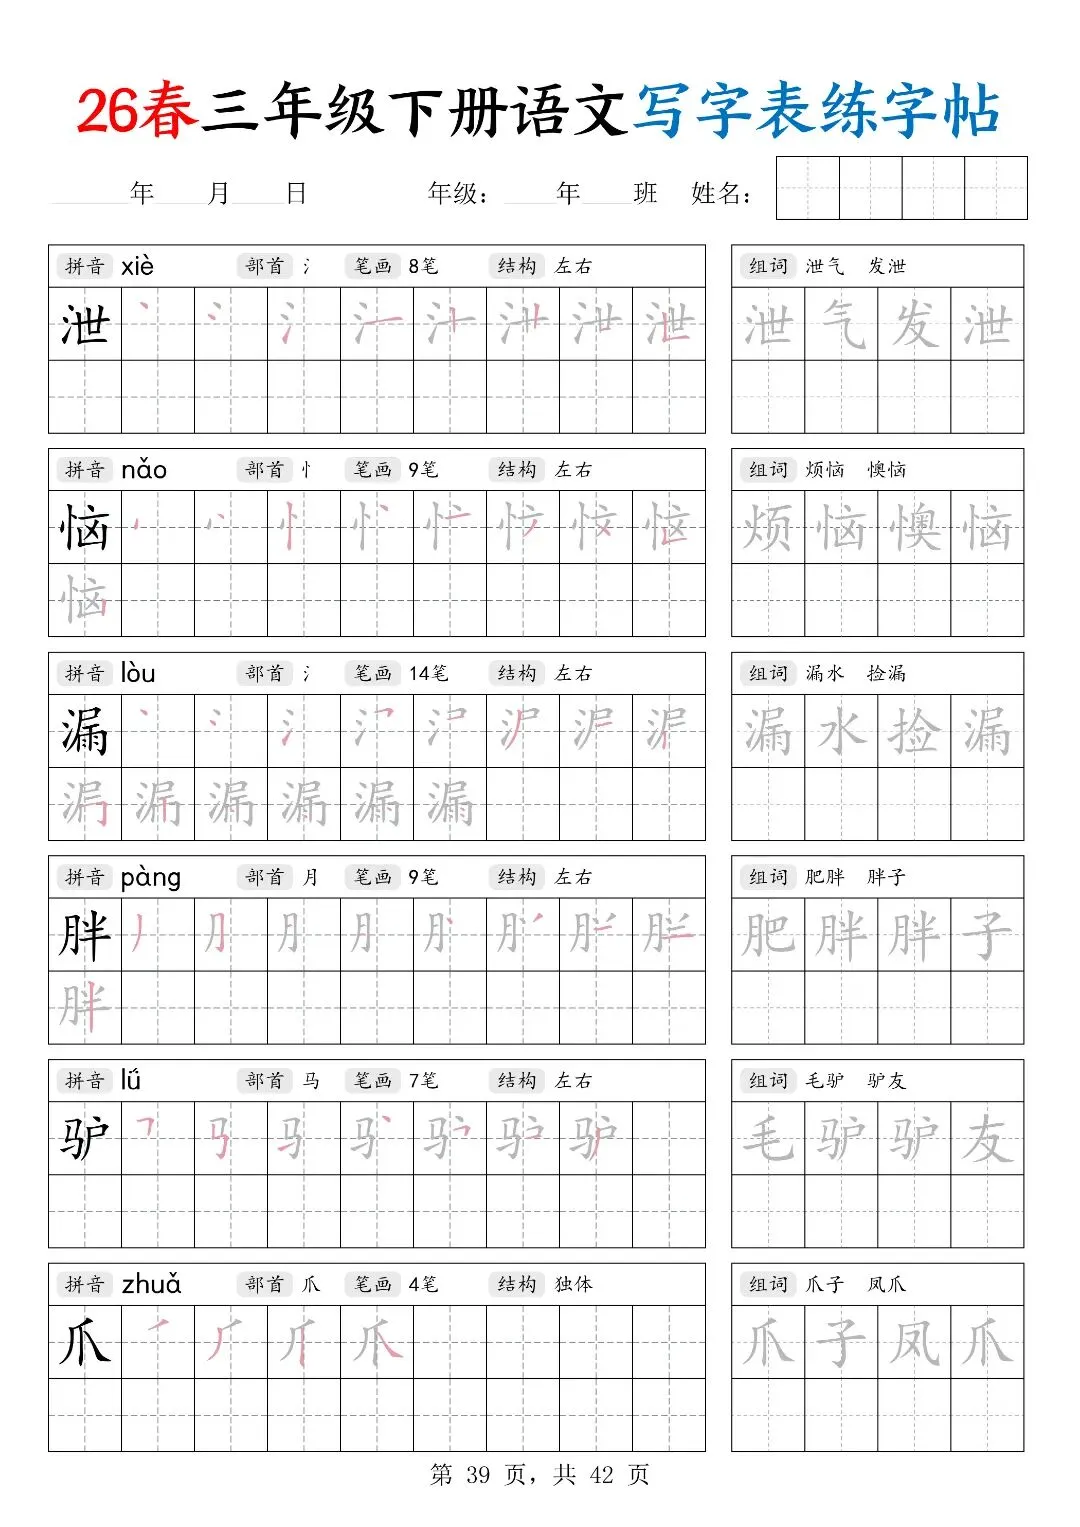 26春三年级下册语文写字表练字帖
年 月 日 年级： 年 班 姓名：
拼音 xiè 部首 氵 笔画 8笔 结构 左右 组词 泄气 发泄
泄 泄 气 发 泄
拼音 nǎo 部首 忄 笔画 9笔 结构 左右 组词 烦恼 懊恼
恼 烦 恼 懊 恼
恼
拼音 lòu 部首 氵 笔画 14笔 结构 左右 组词 漏水 捡漏
漏 漏 水 捡 漏
漏 漏 漏 漏
拼音 pàng 部首 月 笔画 9笔 结构 左右 组词 肥胖 胖子
胖 肥 胖 胖 子
胖
拼音 lǘ 部首 马 笔画 7笔 结构 左右 组词 毛驴 驴友
驴 驴 毛 驴 驴 友
拼音 zhuǎ 部首 爪 笔画 4笔 结构 独体 组词 爪子 凤爪
爪 爪 爪 子 凤 爪
第 39 页，共 42 页